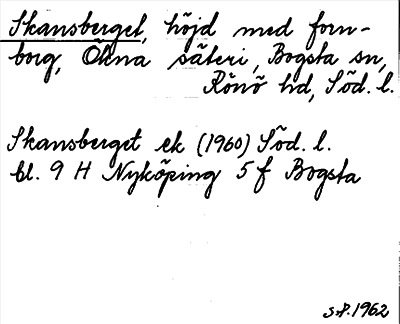 Skansberget, höjd med forn-
borg, Ökna säteri, Bogsta sn,
Rönö hd, Söd. l.
Skansberget ek (1960) Söd. l.
bl. 9 H Nyköping 5 f Bogsta
S.P. 1962